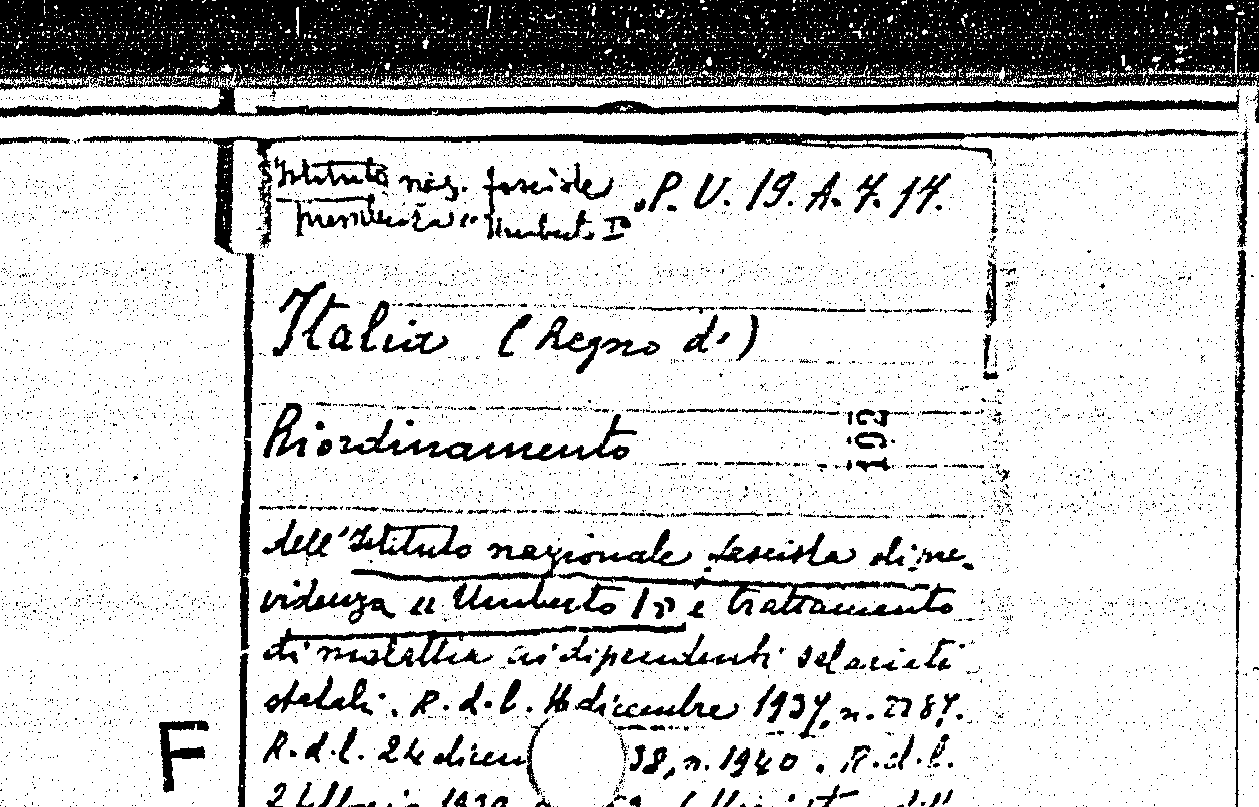 Istituto naz. fascista P. V. 19. A. 7. 17.
previdenza "Umberto I°
Italia (Regno d')
Riordinamento
192
dell'Istituto nazionale fascista di pre-
videnza "Umberto I°" e trattamento
di malattia ai dipendenti salariati
statali. R. d. l. 16 dicembre 1937, n. 2287.
F
R. d. l. 24 dicem 38, n. 1940. R. d. l.